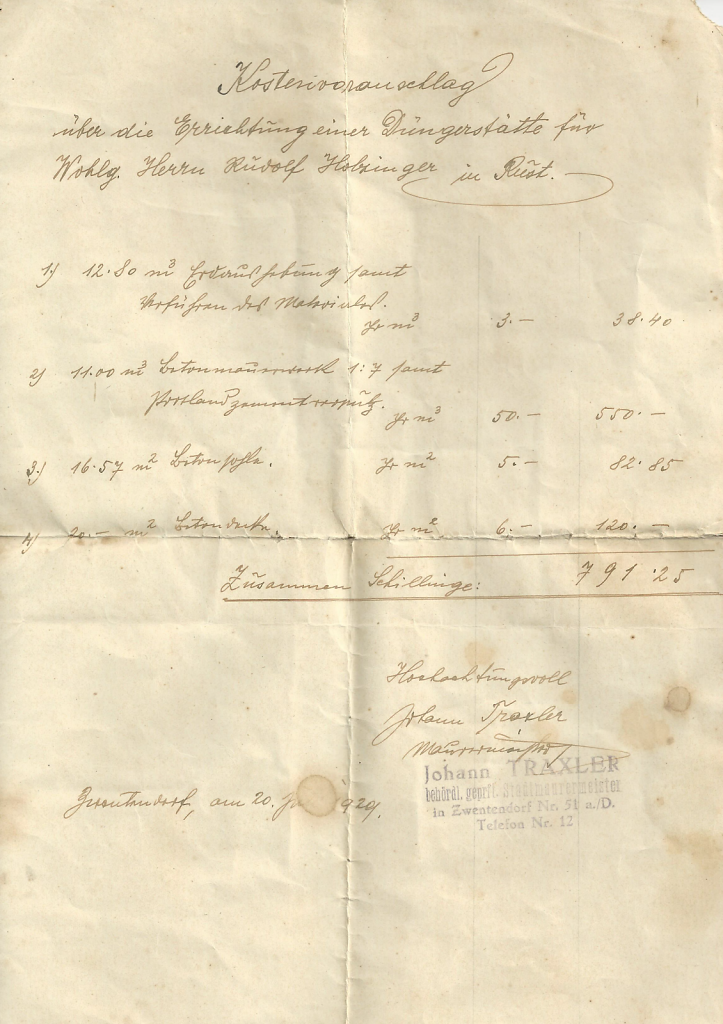 Kostenvoranschlag
über die Errichtung einer Düngerstätte für
Wohlg. Herrn Rudolf Holzinger in Rust.
1.) 12·80 m³ Erdaushebung samt
Verführen des Materiales.
pr m³ 3.— 38·40
2) 11.00 m³ Betonmauerwerk 1:7 samt
Portlandzementverputz.
pr m³ 50.— 550.—
3.) 16·57 m² Betonsohle. pr m² 5.— 82·85
4) 20.— m² Betondecke. pr m² 6.— 120.—
Zusammen Schillinge: 791·25
Hochachtungsvoll
Johann Traxler
Maurermeister
Johann TRAXLER
behördl. geprft. Stadtmaurermeister
in Zwentendorf Nr. 51 a./D.
Telefon Nr. 12
Zwentendorf, am 20. 1929.